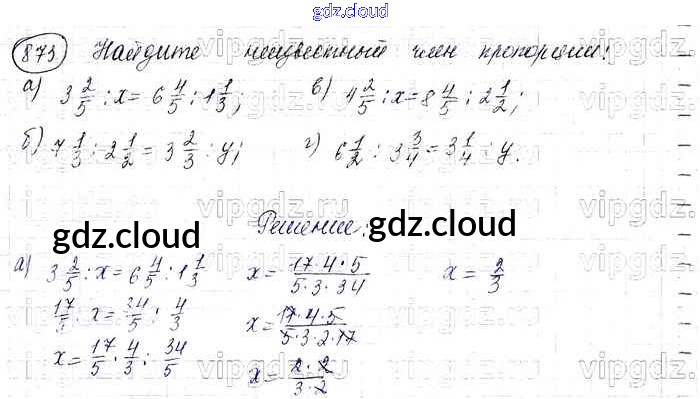 gdz.cloud
873 Найдите неизвестный член пропорции:
а) 3 2/5 : x = 6 4/5 : 1 1/3; в) 4 2/5 : x = 8 4/5 : 2 1/2;
б) 7 1/3 : 2 1/2 = 3 2/3 : y; г) 6 1/2 : 3 3/4 = 3 1/4 : y.
vipgdz.ru vipgdz.ru vipgdz.ru
Решение:
gdz.cloud gdz.cloud
а) 3 2/5 : x = 6 4/5 : 1 1/3 x = 17·4·5/5·3·34 x = 2/3
17/5 : x = 34/5 : 4/3 x = 17·4·5/5·3·2·17
x = 17/5 · 4/3 : 34/5 x = 2·2/3·2